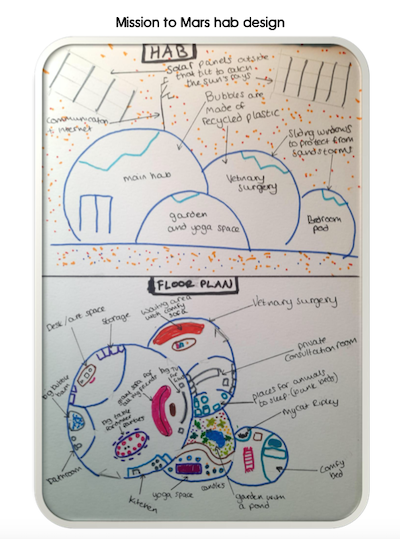 Mission to Mars hab design
HAB
Solar panels outside
that tilt to catch
the sun's rays
Communication
& internet
Bubbles are
made of
recycled plastic
Sliding windows
to protect from
sandstorms
main hab
Vetinary
surgery
garden
and yoga space
Bedroom
pod
FLOOR PLAN
Waiting area
with comfy
sofa
Vetinary surgery
Desk/art space
Storage
private
consultation room
places for animals
to sleep (bunk beds)
my cat Ripley
big table
for dinner
parties
Bathroom
Kitchen
yoga space
candles
garden with
a pond
Comfy
bed